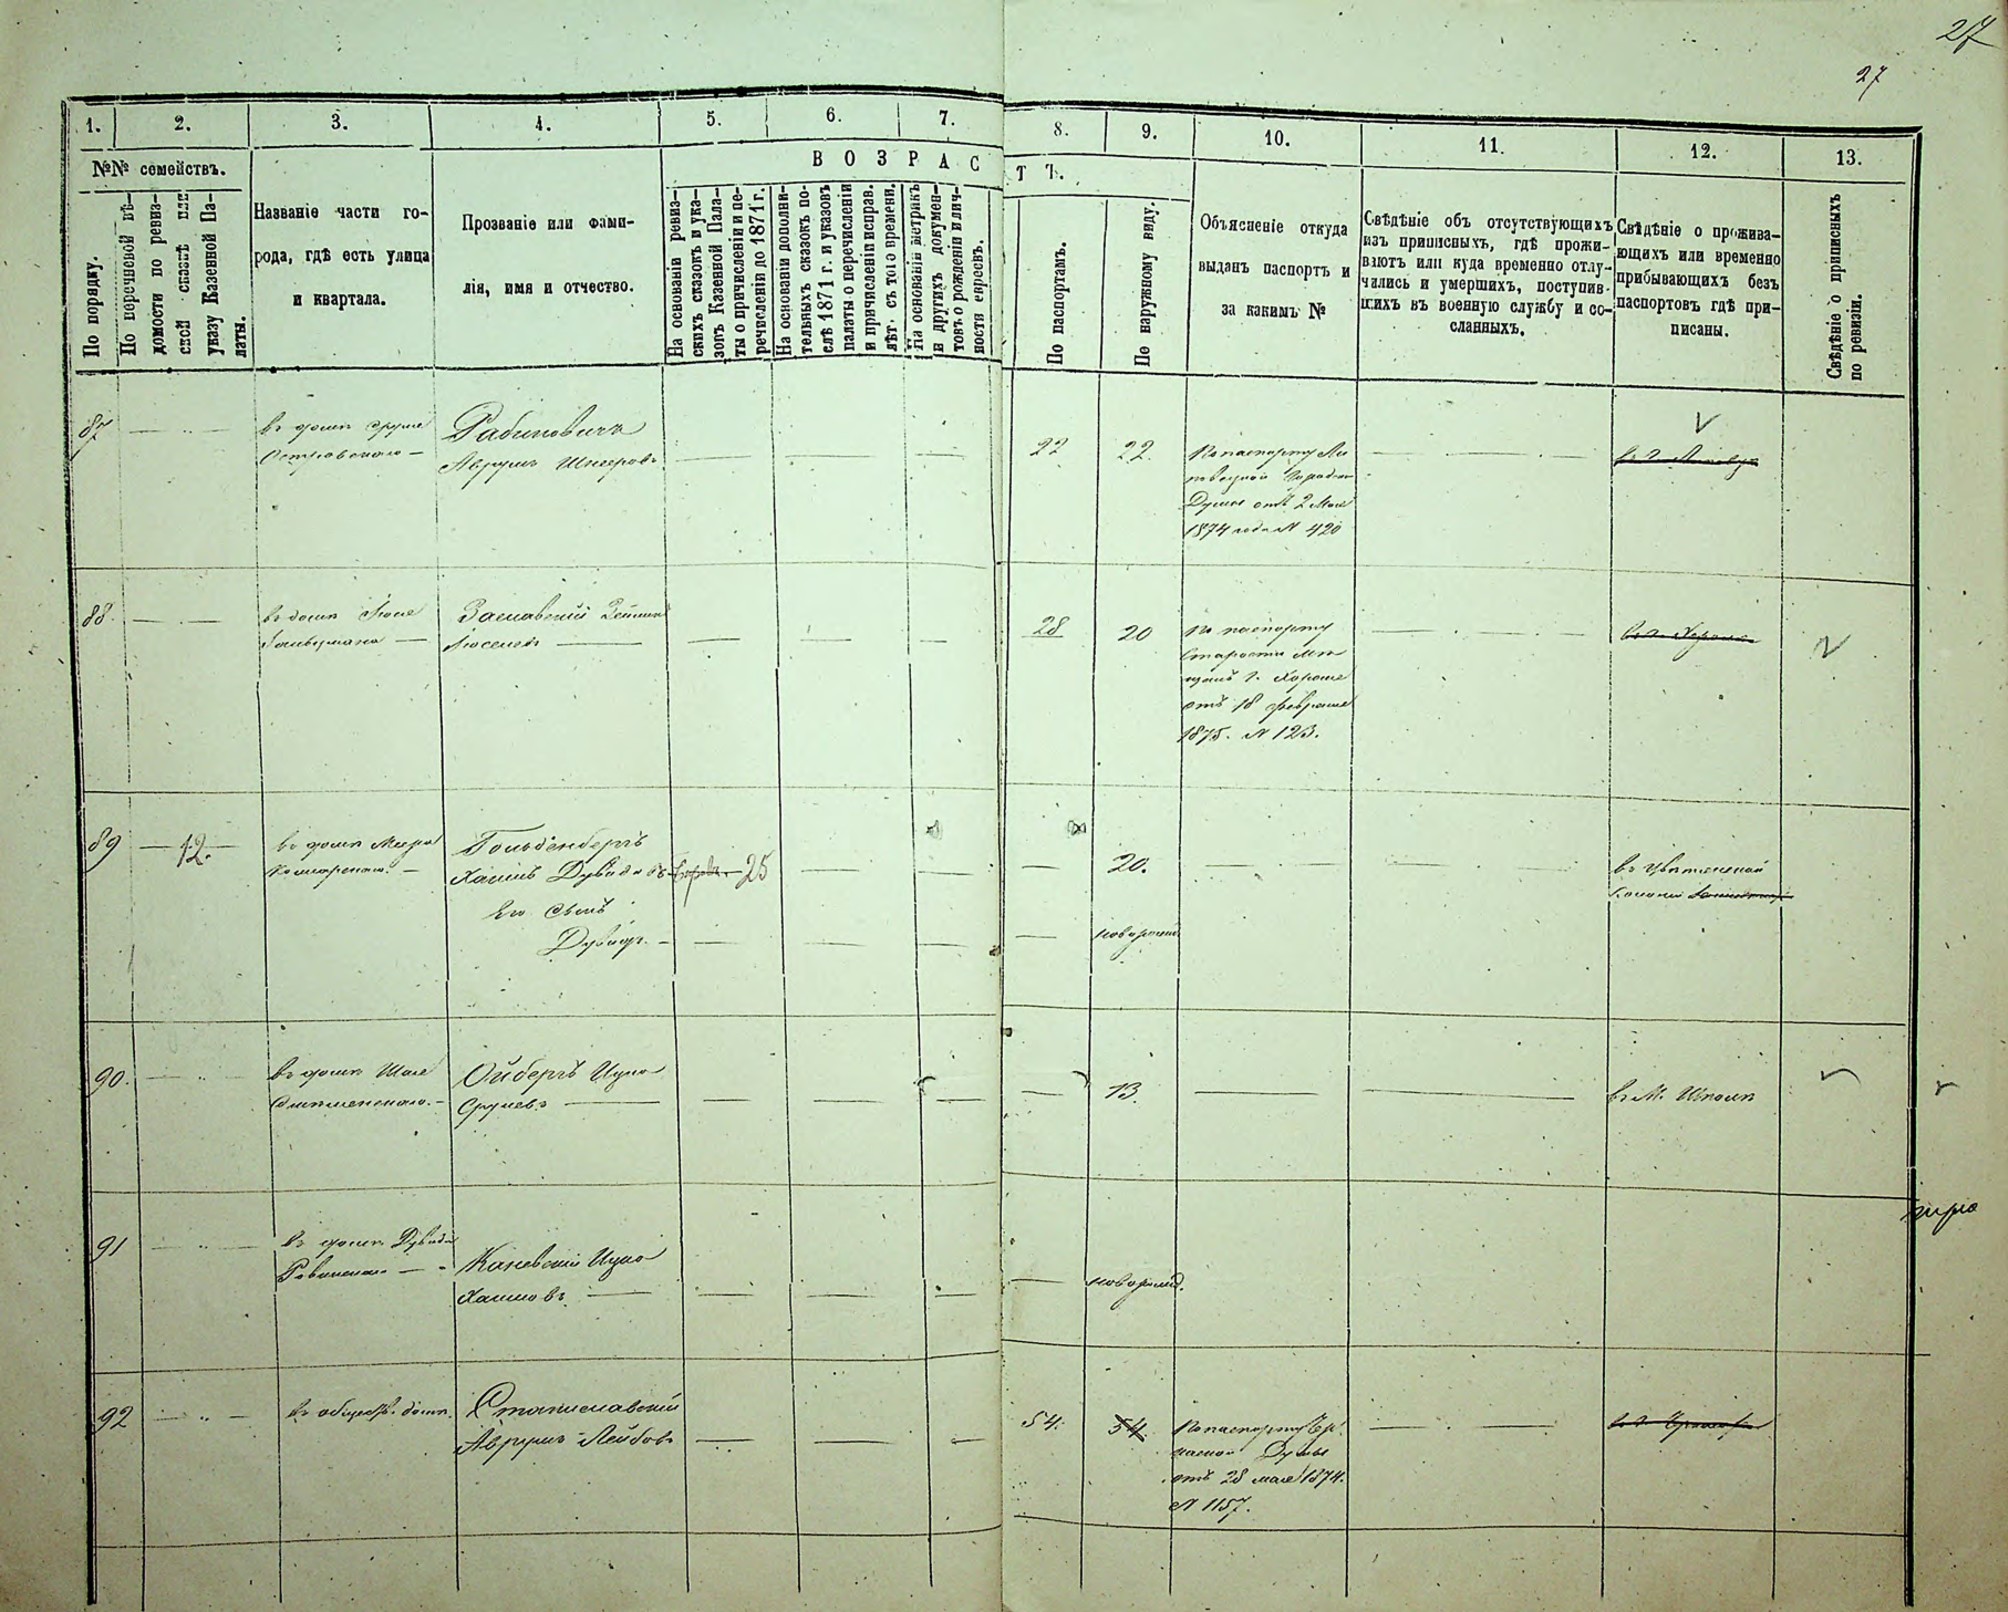 27
27
1.
2.
3.
4.
5.
6.
7.
8.
9.
10.
11.
12.
13.
№№ семействъ.
По порядку.
По перечневой вѣ-
домости по ревиз-
ской сказкѣ или
указу Казенной Па-
латы.
Названіе части го-
рода, гдѣ есть улица
и квартала.
Прозваніе или фами-
лія, имя и отчество.
ВОЗРАСТЪ.
На основаніи ревиз-
скихъ сказокъ и ука-
зовъ Казенной Пала-
ты о причисленіи и пе-
речисленіи до 1871 г.
На основаніи дополни-
тельныхъ сказокъ по-
слѣ 1871 г. и указовъ
палаты о перечисленіи
и причисленіи исправ.
лѣт. съ того времени.
На основаніи метрикъ
и другихъ докумен-
товъ о рожденіи и лич-
ности евреевъ.
По паспортамъ.
По наружному виду.
Объясненіе откуда
выданъ паспортъ и
за какимъ №
Свѣдѣніе объ отсутствующихъ
изъ приписныхъ, гдѣ прожи-
ваютъ или куда временно отлу-
чились и умершихъ, поступив-
шихъ въ военную службу и со-
сланныхъ.
Свѣдѣніе о прожива-
ющихъ или временно
прибывающихъ безъ
паспортовъ гдѣ при-
писаны.
Свѣдѣніе о приписныхъ
по ревизіи.
87
въ домѣ Сруля
Островскаго
Рабиновичъ
Аврумъ Шнееровъ
22
22.
По паспорту Ли
повецкой Городской
Думы отъ 2 Мая
1874 года № 420
88.
въ домѣ
Заславскій
28
20
По паспорту
Старосты Мѣ
щанъ г.
отъ 18 февраля
1875. № 123.
89
12.
въ домѣ Меера
Гольденбергъ
Хаимъ Дувидовъ
25
20.
Его сынъ
Дувидъ.
новорожд
90.
въ домѣ
Ойбергъ Ицко
Срулевъ
13.
въ М. Шполѣ
91
въ домѣ Дувида
Каневскій Ицко
Хаимовъ
новорожд.
92
въ обществ. домѣ.
Станиславскій
Аврумъ Лейбовъ
54.
54
По паспорту Чер
каской Думы
отъ 28 мая 1874.
№ 1157.